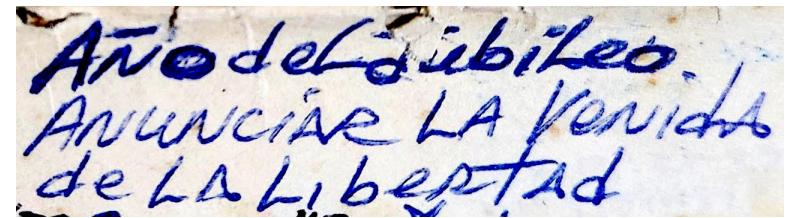 Año del Jubileo.
Anunciar la venida
de la libertad